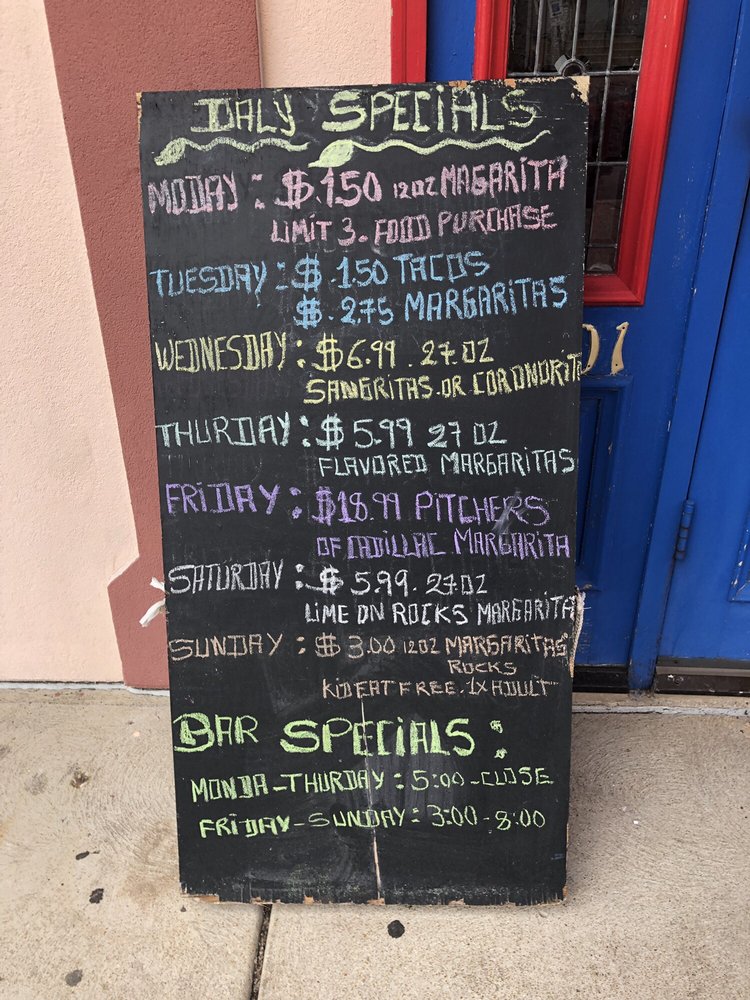 DALY SPECIALS
MODAY: $.1.50 12OZ MAGARITA
LIMIT 3. FOOD PURCHASE
TUESDAY: $.1.50 TACOS
$.2.75 MARGARITAS
WEDNESDAY: $6.99.27.OZ
SANGRITAS.OR CORONORITA
THURDAY: $5.99 27 OZ
FLAVORED MARGARITAS
FRIDAY: $18.99 PITCHERS
OF CADILLAC MARGARITA
SATURDAY: $5.99.27OZ
LIME ON ROCKS MARGARITA
SUNDAY: $3.00 12OZ MARGARITAS
ROCKS
KID EAT FREE.1X ADULT
BAR SPECIALS:
MONDA-THURDAY: 5:00-CLOSE
FRIDAY-SUNDAY: 3:00-8:00
01